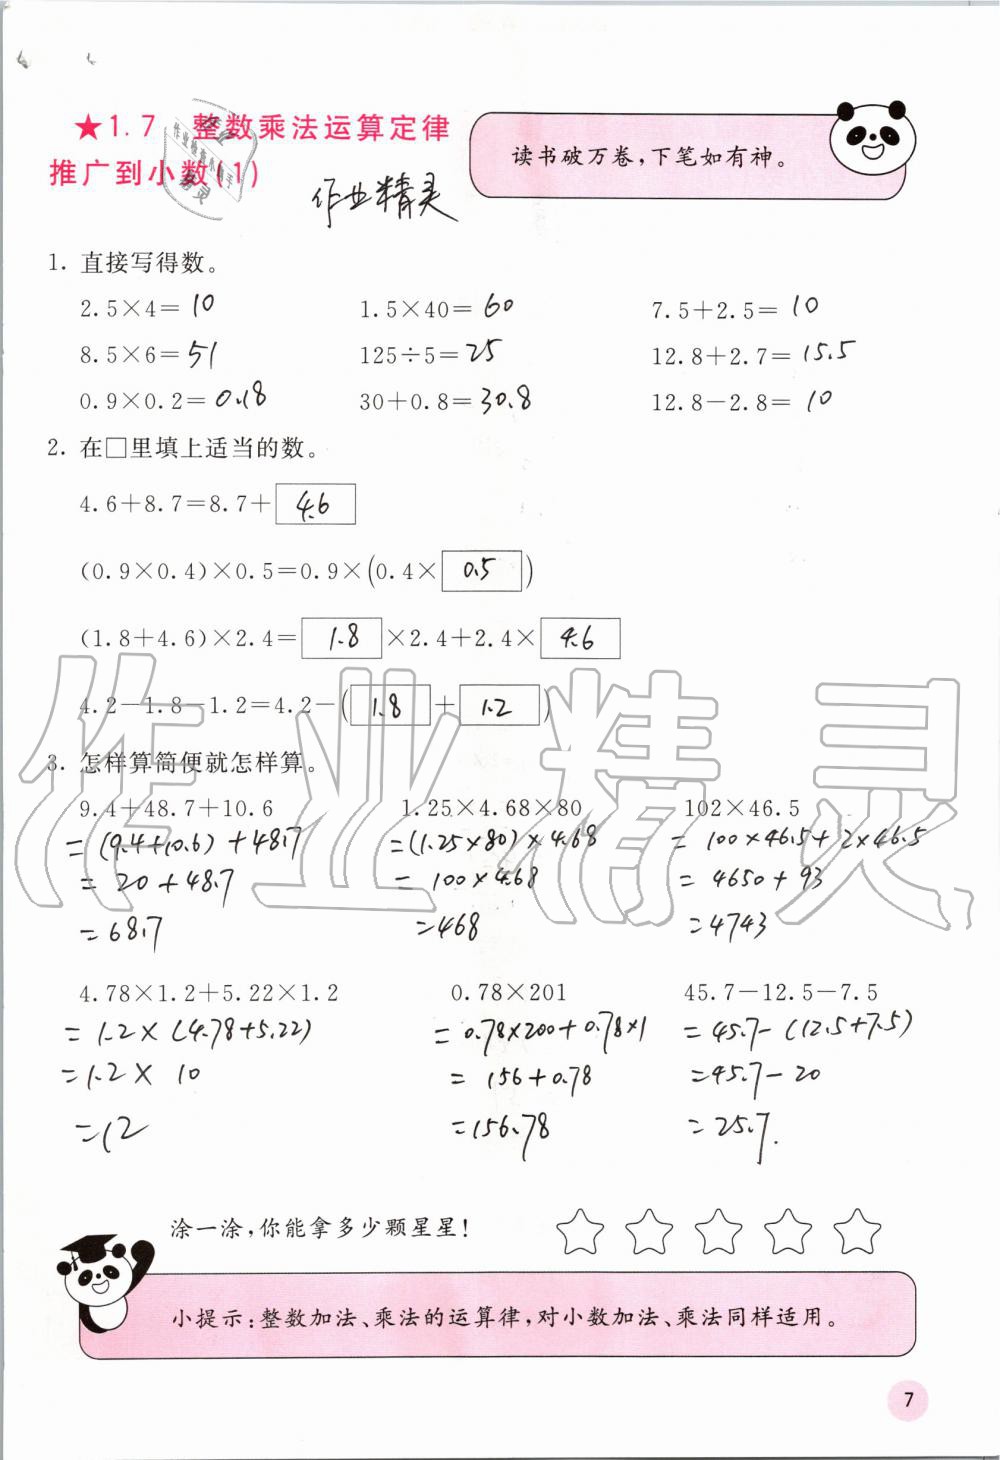 ★1.7 整数乘法运算定律
推广到小数(1)
读书破万卷,下笔如有神。
作业精灵
1. 直接写得数。
2.5×4=10 1.5×40=60 7.5+2.5=10
8.5×6=51 125÷5=25 12.8+2.7=15.5
0.9×0.2=0.18 30+0.8=30.8 12.8-2.8=10
2. 在□里填上适当的数。
4.6+8.7=8.7+4.6
(0.9×0.4)×0.5=0.9×(0.4×0.5)
(1.8+4.6)×2.4=1.8×2.4+2.4×4.6
4.2-1.8-1.2=4.2-(1.8+1.2)
3. 怎样算简便就怎样算。
9.4+48.7+10.6 1.25×4.68×80 102×46.5
=(9.4+10.6)+48.7 =(1.25×80)×4.68 =100×46.5+2×46.5
=20+48.7 =100×4.68 =4650+93
=68.7 =468 =4743
4.78×1.2+5.22×1.2 0.78×201 45.7-12.5-7.5
=1.2×(4.78+5.22) =0.78×200+0.78×1 =45.7-(12.5+7.5)
=1.2×10 =156+0.78 =45.7-20
=12 =156.78 =25.7.
作业精灵
涂一涂,你能拿多少颗星星!
小提示:整数加法、乘法的运算律,对小数加法、乘法同样适用。
7